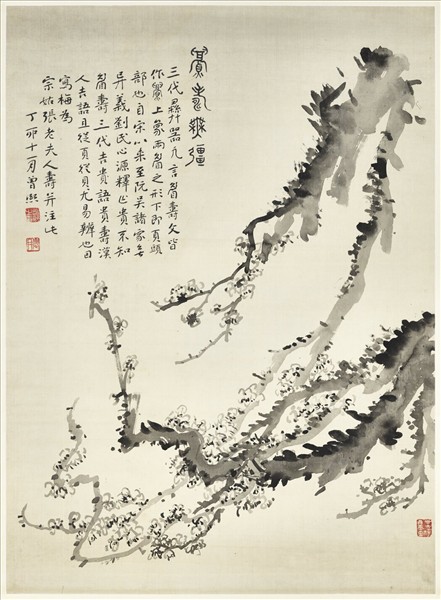 眉壽無疆
三代彝器凡言眉壽文皆
作𧷓上象兩眉之形下即頁頭
部也自宋以來至阮吳諸家無
異義劉氏心源釋作貴不知
眉壽三代吉語貴壽漢
人吉語且從頁從貝尤易辨也因
寫梅為
宗姑張老夫人壽并注此
丁卯十一月曾熙